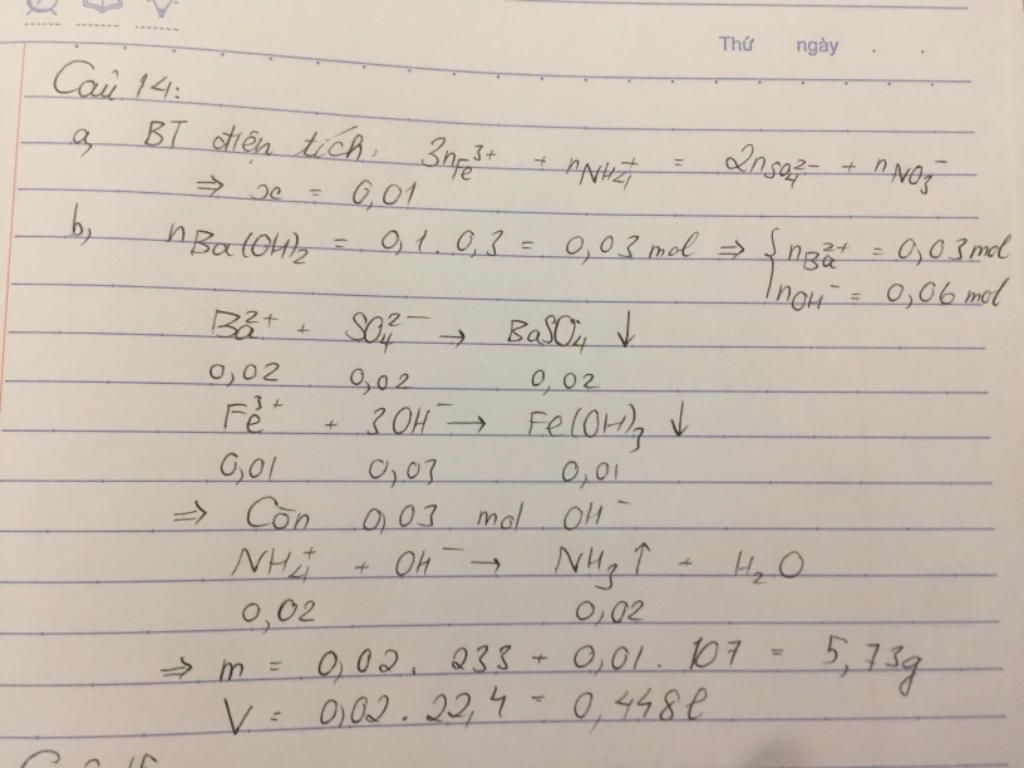 Thứ ngày . .
Câu 14:
a, BT điện tích: 3nFe³⁺ + nNH₄⁺ = 2nSO₄²⁻ + nNO₃⁻
⇒ x = 0,01
b, nBa(OH)₂ = 0,1 . 0,3 = 0,03 mol ⇒ { nBa²⁺ = 0,03 mol
nOH⁻ = 0,06 mol
Ba²⁺ + SO₄²⁻ → BaSO₄ ↓
0,02 0,02 0,02
Fe³⁺ + 3OH⁻ → Fe(OH)₃ ↓
0,01 0,03 0,01
⇒ Còn 0,03 mol OH⁻
NH₄⁺ + OH⁻ → NH₃↑ + H₂O
0,02 0,02
⇒ m = 0,02 . 233 + 0,01 . 107 = 5,73g
V = 0,02 . 22,4 = 0,448l